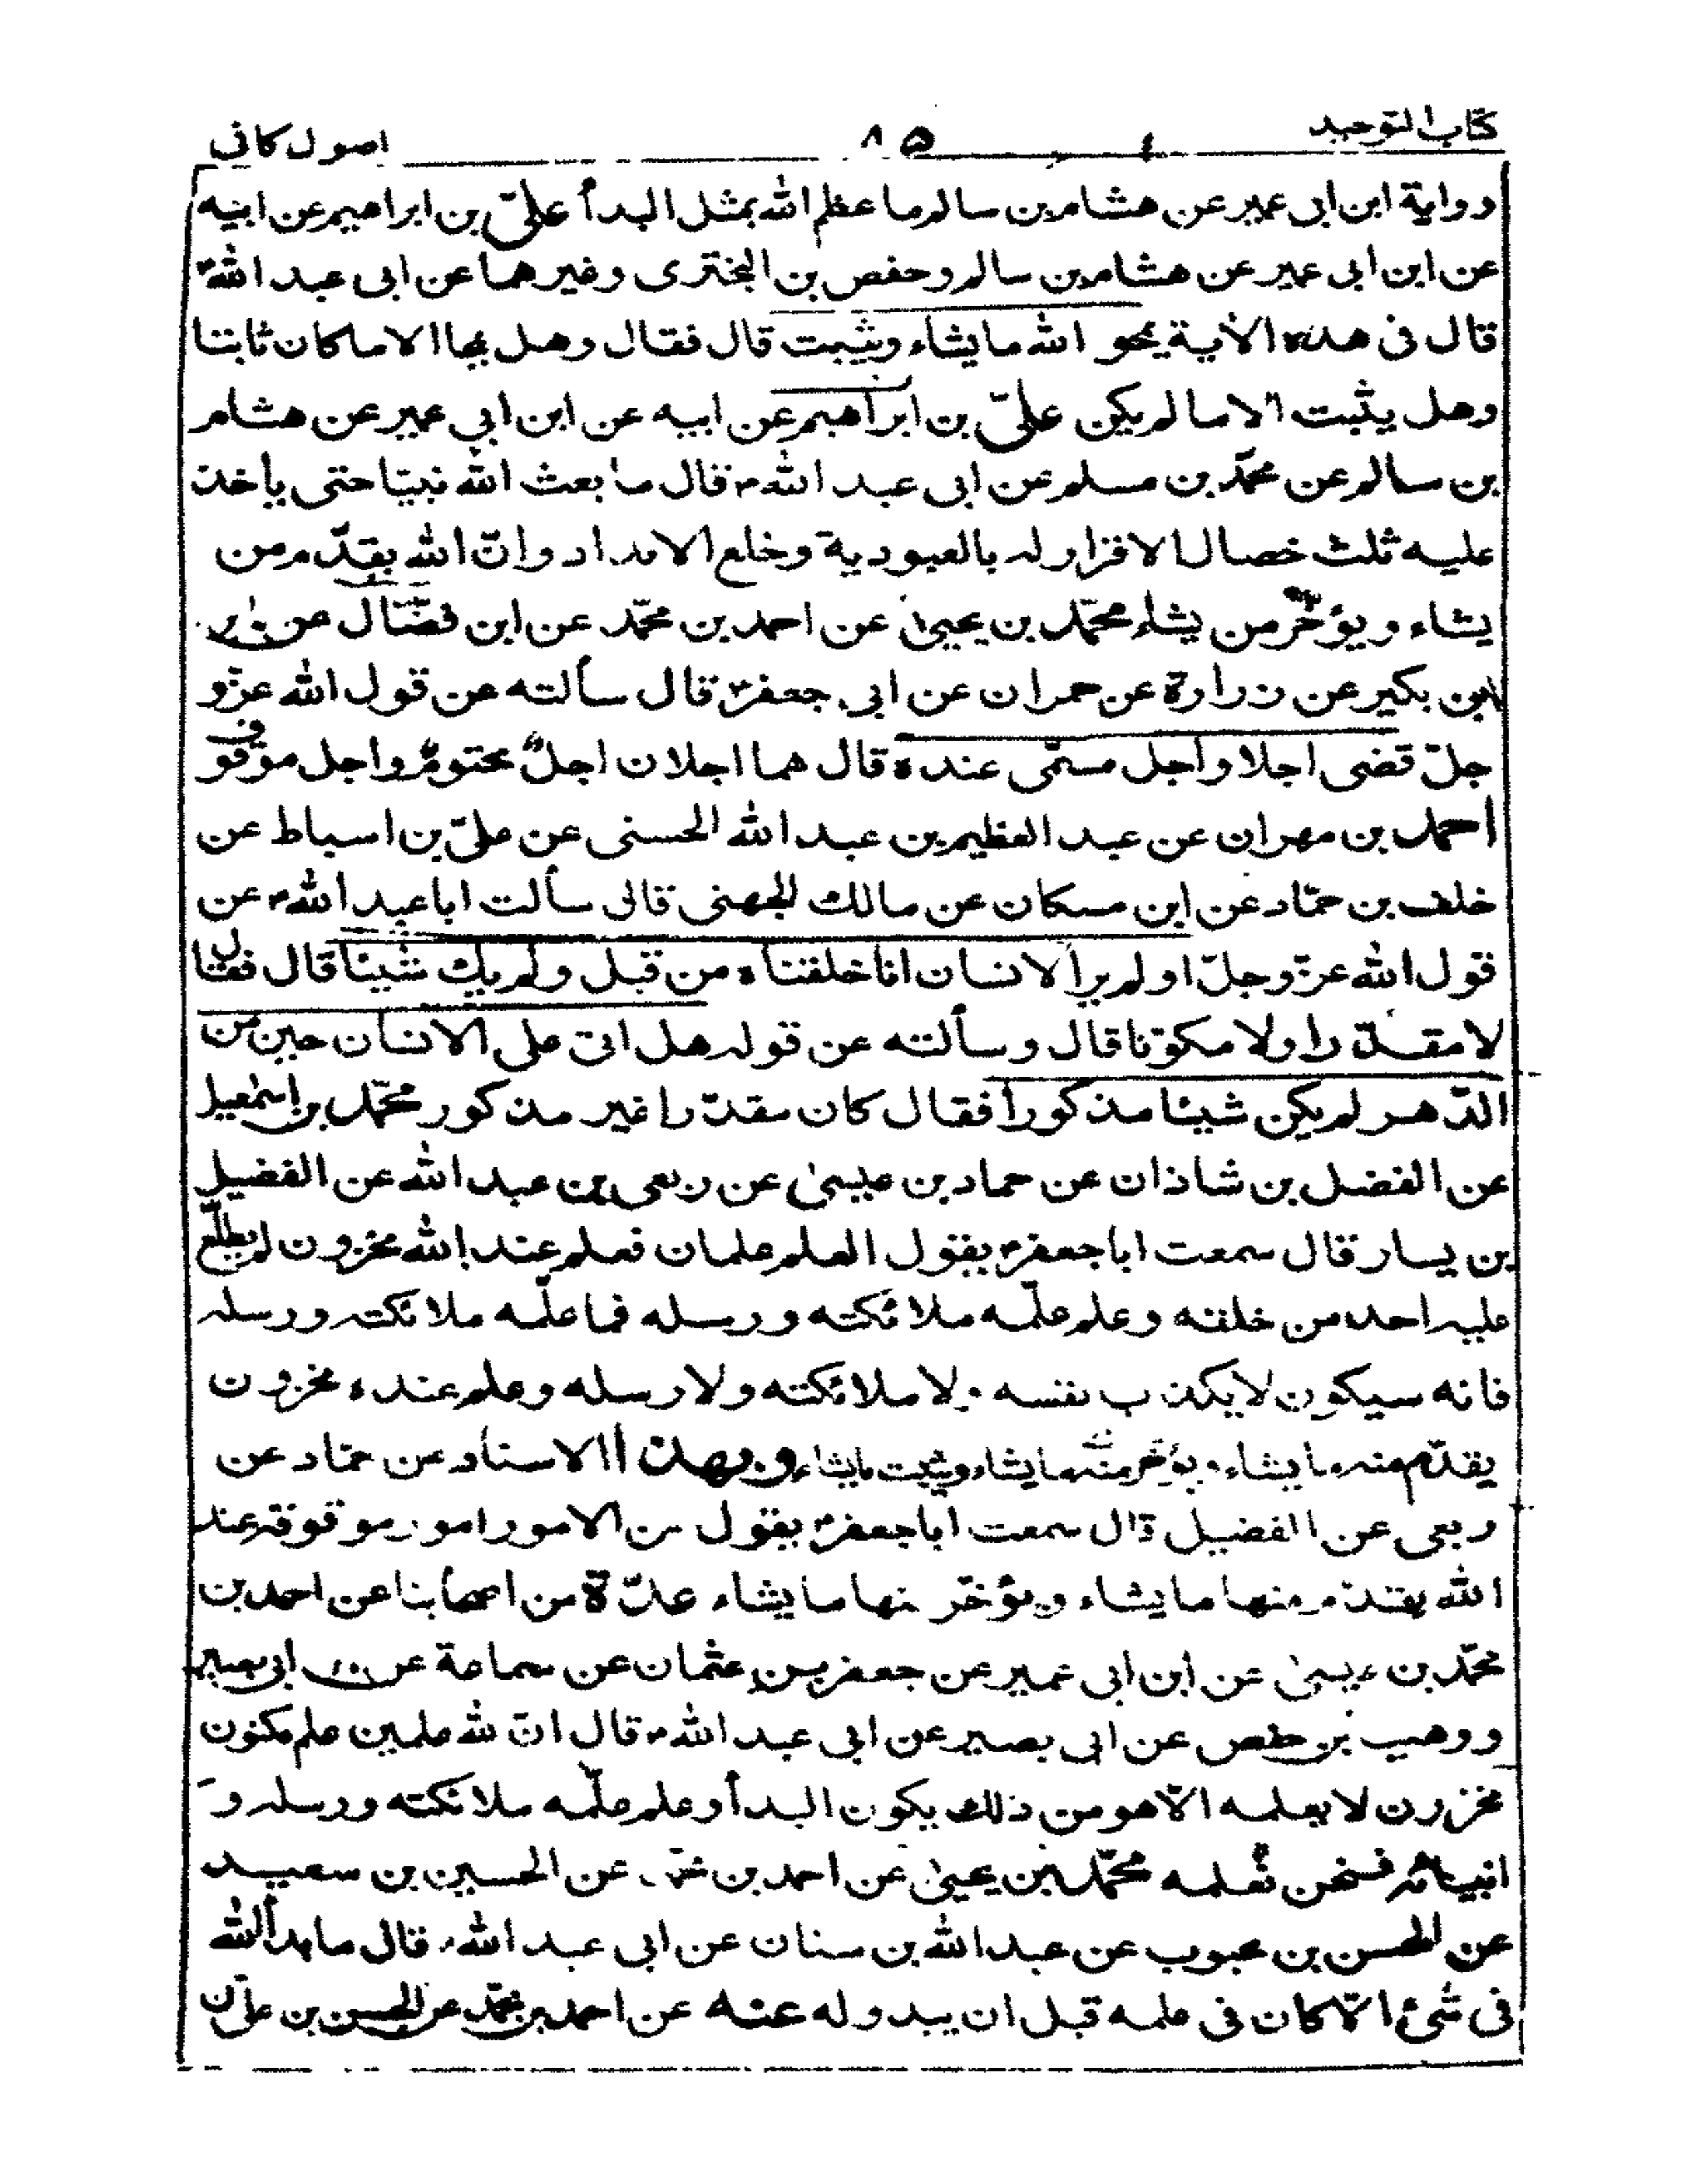 كتاب التوحيد ٨٥ اصول كافى
رواية ابن ابى عمير عن هشام بن سالم ما عظم الله بمثل البدأ علىّ بن ابراهيم عن ابيه
عن ابن ابى عمير عن هشام بن سالم وحفص بن البخترى وغيرهما عن ابى عبد الله ع
قال فى هذه الأية يمحو الله ما يشاء ويثبت قال فقال وهل يمحا الا ما كان ثابتا
وهل يثبت الا ما لم يكن علىّ بن ابراهيم عن ابيه عن ابن ابي عمير عن هشام
بن سالم عن محمّد بن مسلم عن ابى عبد الله ع قال ما بعث الله نبيّا حتى يأخذ
عليه ثلث خصال الاقرار له بالعبودية وخلع الانداد وانّ الله يقدّم من
يشاء ويؤخّر من يشاء محمّد بن يحيىٰ عن احمد بن محمّد عن ابن فضّال عن
ابن بكير عن زرارة عن حمران عن ابى جعفر ع قال سألته عن قول الله عزّ و
جلّ قضى اجلا واجل مسمّى عنده قال هما اجلان اجلٌ محتومٌ واجل موقوف
احمد بن مهران عن عبد العظيم بن عبد الله الحسنى عن علىّ بن اسباط عن
خلف بن حمّاد عن ابن مسكان عن مالك الجهنى قال سألت ابا عبد الله ع عن
قول الله عزّ وجلّ اولم يرأ الانسان انا خلقناه من قبل ولم يك شيئا قال فقال
لا مقدّرا ولا مكوّنا قال وسألته عن قوله هل اتى على الانسان حين من
الدّهر لم يكن شيئا مذكورا فقال كان مقدّرا غير مذكور محمّد بن اسمٰعيل
عن الفضل بن شاذان عن حماد بن عيسىٰ عن ربعى بن عبد الله عن الفضيل
بن يسار قال سمعت ابا جعفر ع يقول العلم علمان فعلم عند الله مخزون لم يطلّع
عليه احد من خلقه وعلم علّمه ملائكته ورسله فما علّمه ملائكته ورسله
فانه سيكون لا يكذب نفسه ولا ملائكته ولا رسله وعلم عنده مخزون
يقدّم منه ما يشاء ويؤخّر منه ما يشاء ويثبت ما يشاء وبهذا الاسناد عن حمّاد عن
ربعى عن الفضيل قال سمعت ابا جعفر ع يقول من الامور امور موقوفة عند
الله يقدّم منها ما يشاء ويؤخّر منها ما يشاء عدّة من اصحابنا عن احمد بن
محمّد بن عيسىٰ عن ابن ابى عمير عن جعفر بن عثمان عن سماعة عن ابى بصير
ووهيب بن حفص عن ابى بصير عن ابى عبد الله ع قال انّ لله علمين علم مكنون
مخزون لا يعلمه الّا هو من ذلك يكون البدأ وعلم علّمه ملائكته ورسله و
انبيائه فنحن نعلمه محمّد بن يحيىٰ عن احمد بن محمّد عن الحسين بن سعيد
عن الحسن بن محبوب عن عبد الله بن سنان عن ابى عبد الله ع قال ما بدأ لله
فى شئ الّا كان فى علمه قبل ان يبدو له عنه عن احمد بن محمّد عن الحسن بن علىّ بن